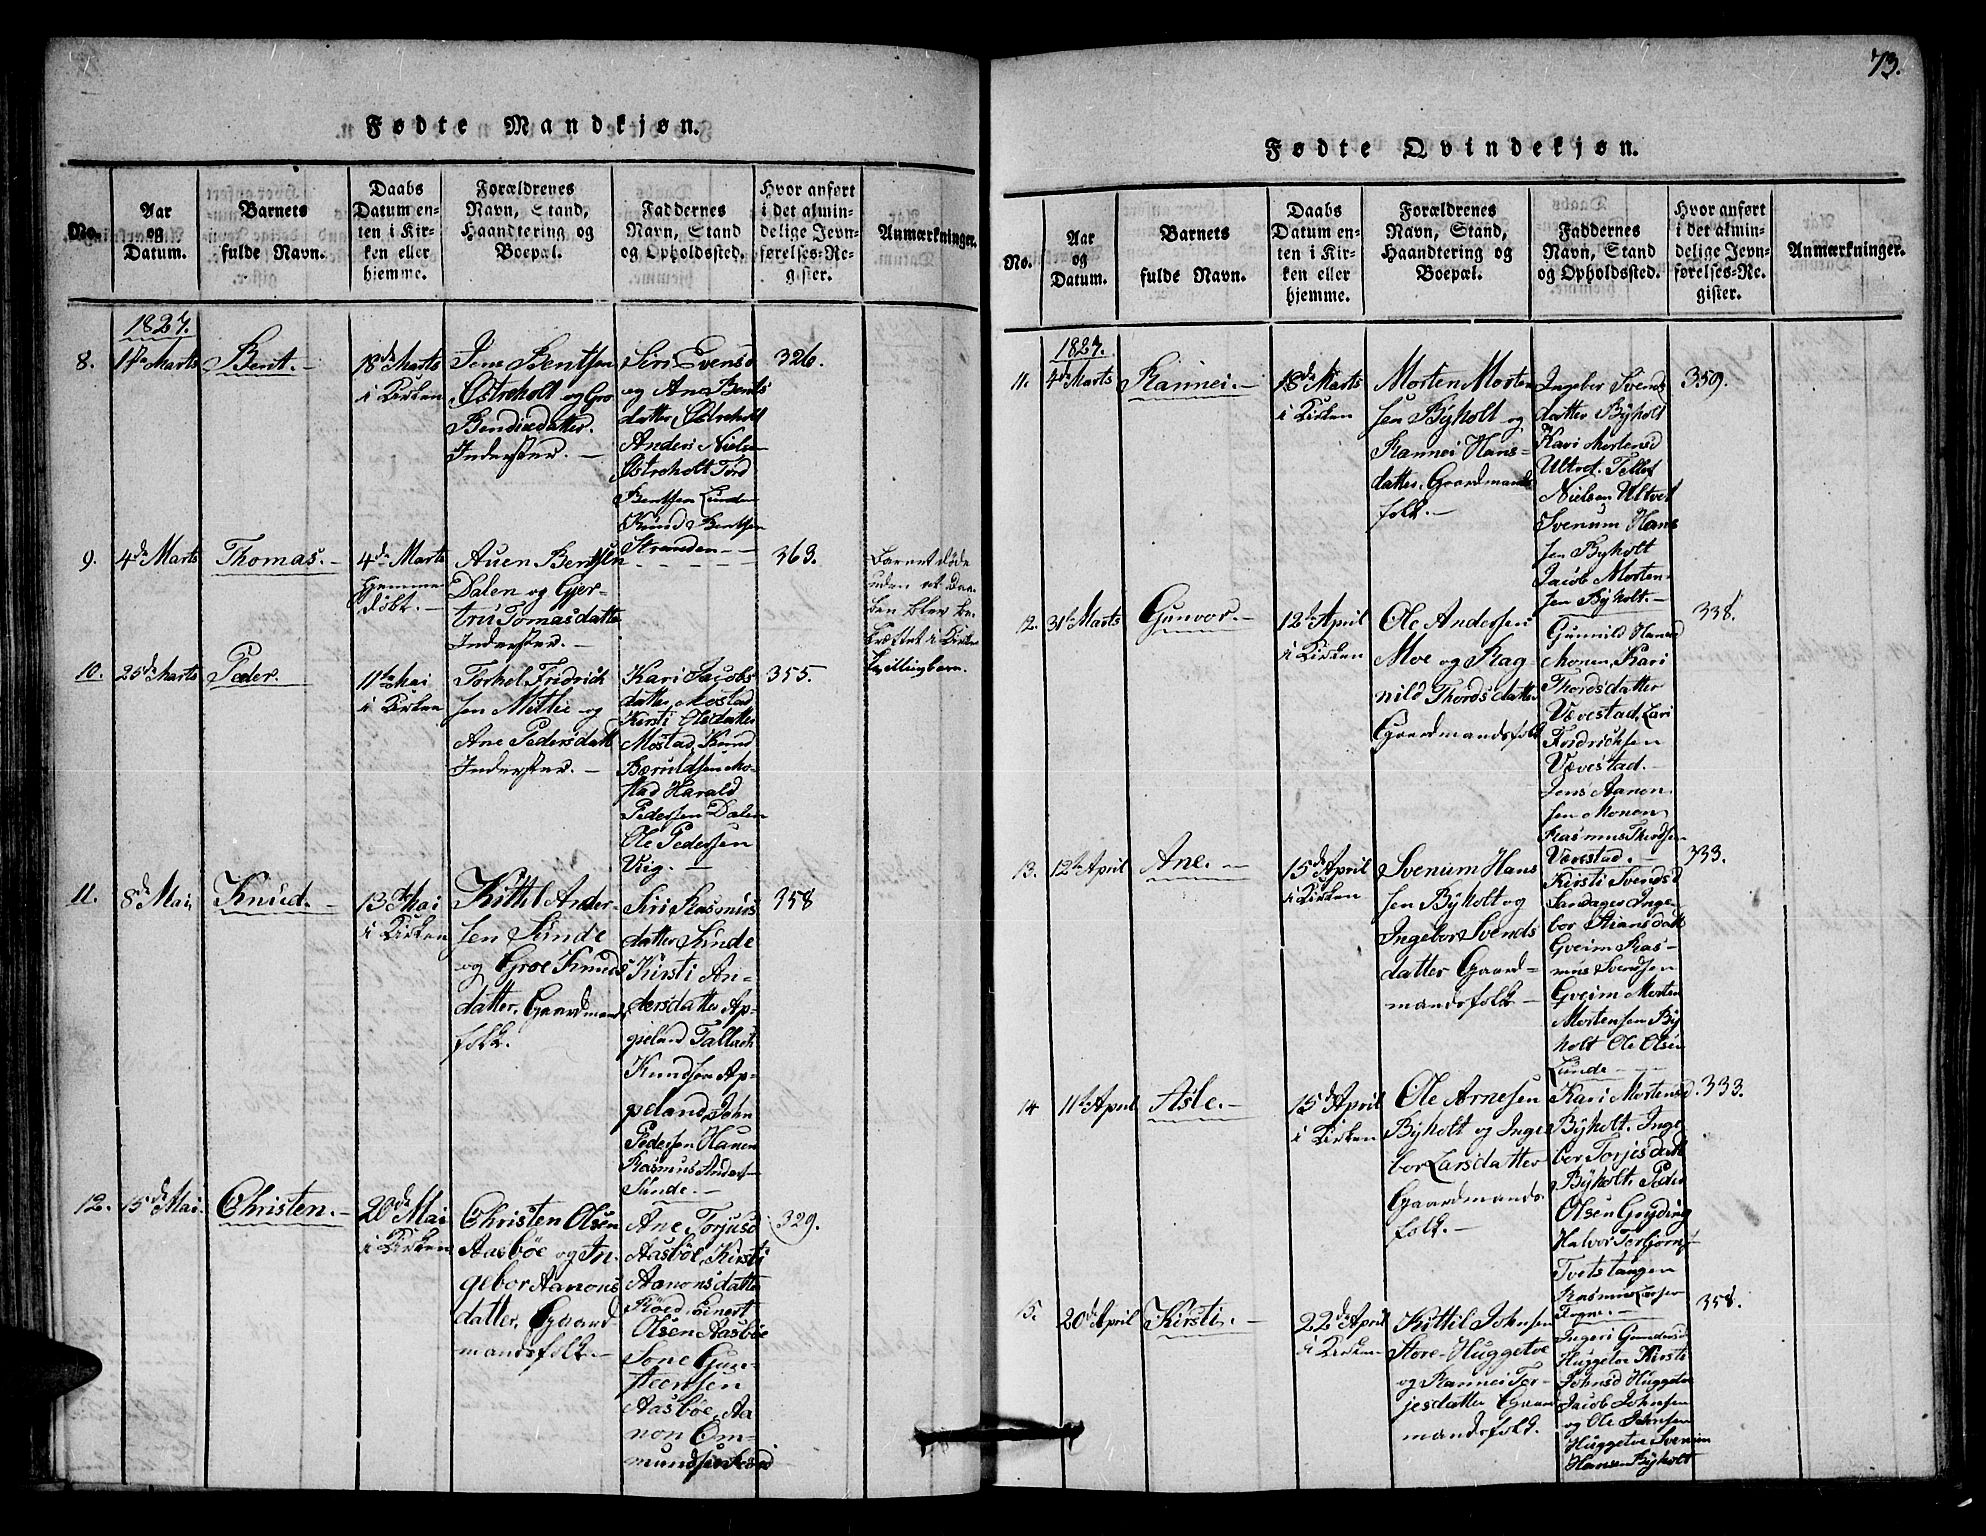 73.
Fødte Mandkjøn.
No.
Aar
og
Datum.
Barnets
fulde Navn.
Daabs
Datum en-
ten i Kir-
ken eller
hjemme.
Forældrenes
Navn, Stand,
Haandtering og
Boepæl.
Faddernes
Navn, Stand
og Opholdssted.
Hvor anført
i det almin-
delige Jevn-
førelses-Re-
gister.
Anmærkninger.
1827.
8.
17de Marts
Bent. -
18de Marts
i Kirken
Jens Bentsen
Østreholt og Gro
Bendixdatter.
Inderster. -
Siri Evensd
og Ane Bents
datter, Østreholt
Anders Nielsen
Østreholt Tord
Bentsen Lunden
Knud Bentsen
Stranden - -
326.
9.
4de Marts
Thomas. -
4de Marts
hjemme
døbt. -
Auen Bentsen
Dalen og Gjer-
tru Tomasdatter
Inderster. -
363.
Barnet døde
uden at Daa-
ben blev be-
kræftet i Kirken
Tvillingbarn.
10.
25de Marts
Peder.
11te Mai
i Kirken
Torkel Fridrich
sen Mittie og
Ane Pedersdatt
Inderster. -
Kari Jacobs
datter, Mostad
Kirsti Olsdatter
Mostad, Knud
Bæruldsen Mo-
stad Harald
Pedersen Dalen
Ole Pedersen
Vig. -
355.
11.
8de Mai,
Knud. -
13de Mai
i Kirken
Kittel Ander-
sen Sunde
og Groe Knuds
datter, Gaardmands
folk.
Siri Rasmus
datter Sunde
Kirsti An-
dersdatter Ap-
peland Tallach
Knudsen Ap-
peland, John
Pedersen Hauen
Rasmus Anders-
Sunde. -
358
12.
15de Mai
Christen. -
20de Mai
i Kirken
Christen Olsen
Aasbøe og In-
gebor Aanons
datter, Gaard
mandsfolk. -
Ane Torjusd
Aasbøe, Kirsti
Aanonsdatter
Røed, Einert
Olsen Aasbøe
Sone Gun-
steensen
Aasbøe, Aa
non Om-
mundsen Røed
329.
Fødte Qvindekjøn.
No.
Aar
og
Datum.
Barnets
fulde Navn.
Daabs
Datum en-
ten i Kir-
ken eller
hjemme.
Forældrenes
Navn, Stand,
Haandtering og
Boepæl.
Faddernes
Navn, Stand
og Opholdssted.
Hvor anført
i det almin-
delige Jevn-
førelses-Re-
gister.
Anmærkninger.
1827.
11.
4de Marts
Rannei. -
18de Marts
i Kirken
Morten Morten
sen Byholt og
Rannei Hans-
datter, Gaardmands
folk. -
Ingeber Svends
datter Byholt
Kari Mortensd
Ultvet. Tellef
Nielsen Ultvet
Svenum Hans
sen Byholt
Jacob Morten-
sen Byholt. -
359.
12.
31te Marts
Gunvor. -
12te April
i Kirken
Ole Andersen
Moe og Rag
nild Thordsdatter
Gaardmandsfolk
Gunnild Hansd
Monen, Kari
Thordsdatter
Vævestad, Lars
Fridrichsen
Vævestad. -
Jens Aanon
sen Monen
Rasmus Thordsen
Vævestad. -
338.
13.
12te April
Ane. -
15de April
i Kirken
Svenum Hans
sen Byholt og
Ingebor Svends
datter Gaard-
mandsfolk -
Kirsti Svendsd
Sandager Inge-
bor Stiansdatt
Gveim Ras-
mus Svendsen
Gveim Morten
Mortensen By
holt Ole Olsen
Lunde - - -
333.
14
11te April
Asle. -
15de April
i Kirken
Ole Arnesen
Byholt og Inge
bor Larsdatter
Gaardmands
folk. -
Kari Mortensd.
Byholt. Inge
bor Torjesdatt
Byholt. Peder
Olsen Gryting
Halvor Torbjørns
Tvetstangen
Rasmus Larsen
Fogne. -
333.
15.
20de April
Kirsti. -
22de April
i Kirken
Kittil Johnsen
Store-Huggetve
og Rannei Tor-
jesdatter Gaar
mandsfolk.
Ingeri Gundersd
Huggetve Kirsti
Johnsd Huggetve
Jacob Johnsen
og Ole Johnsen
Huggetve Svenum
Hansen Byholt
358.